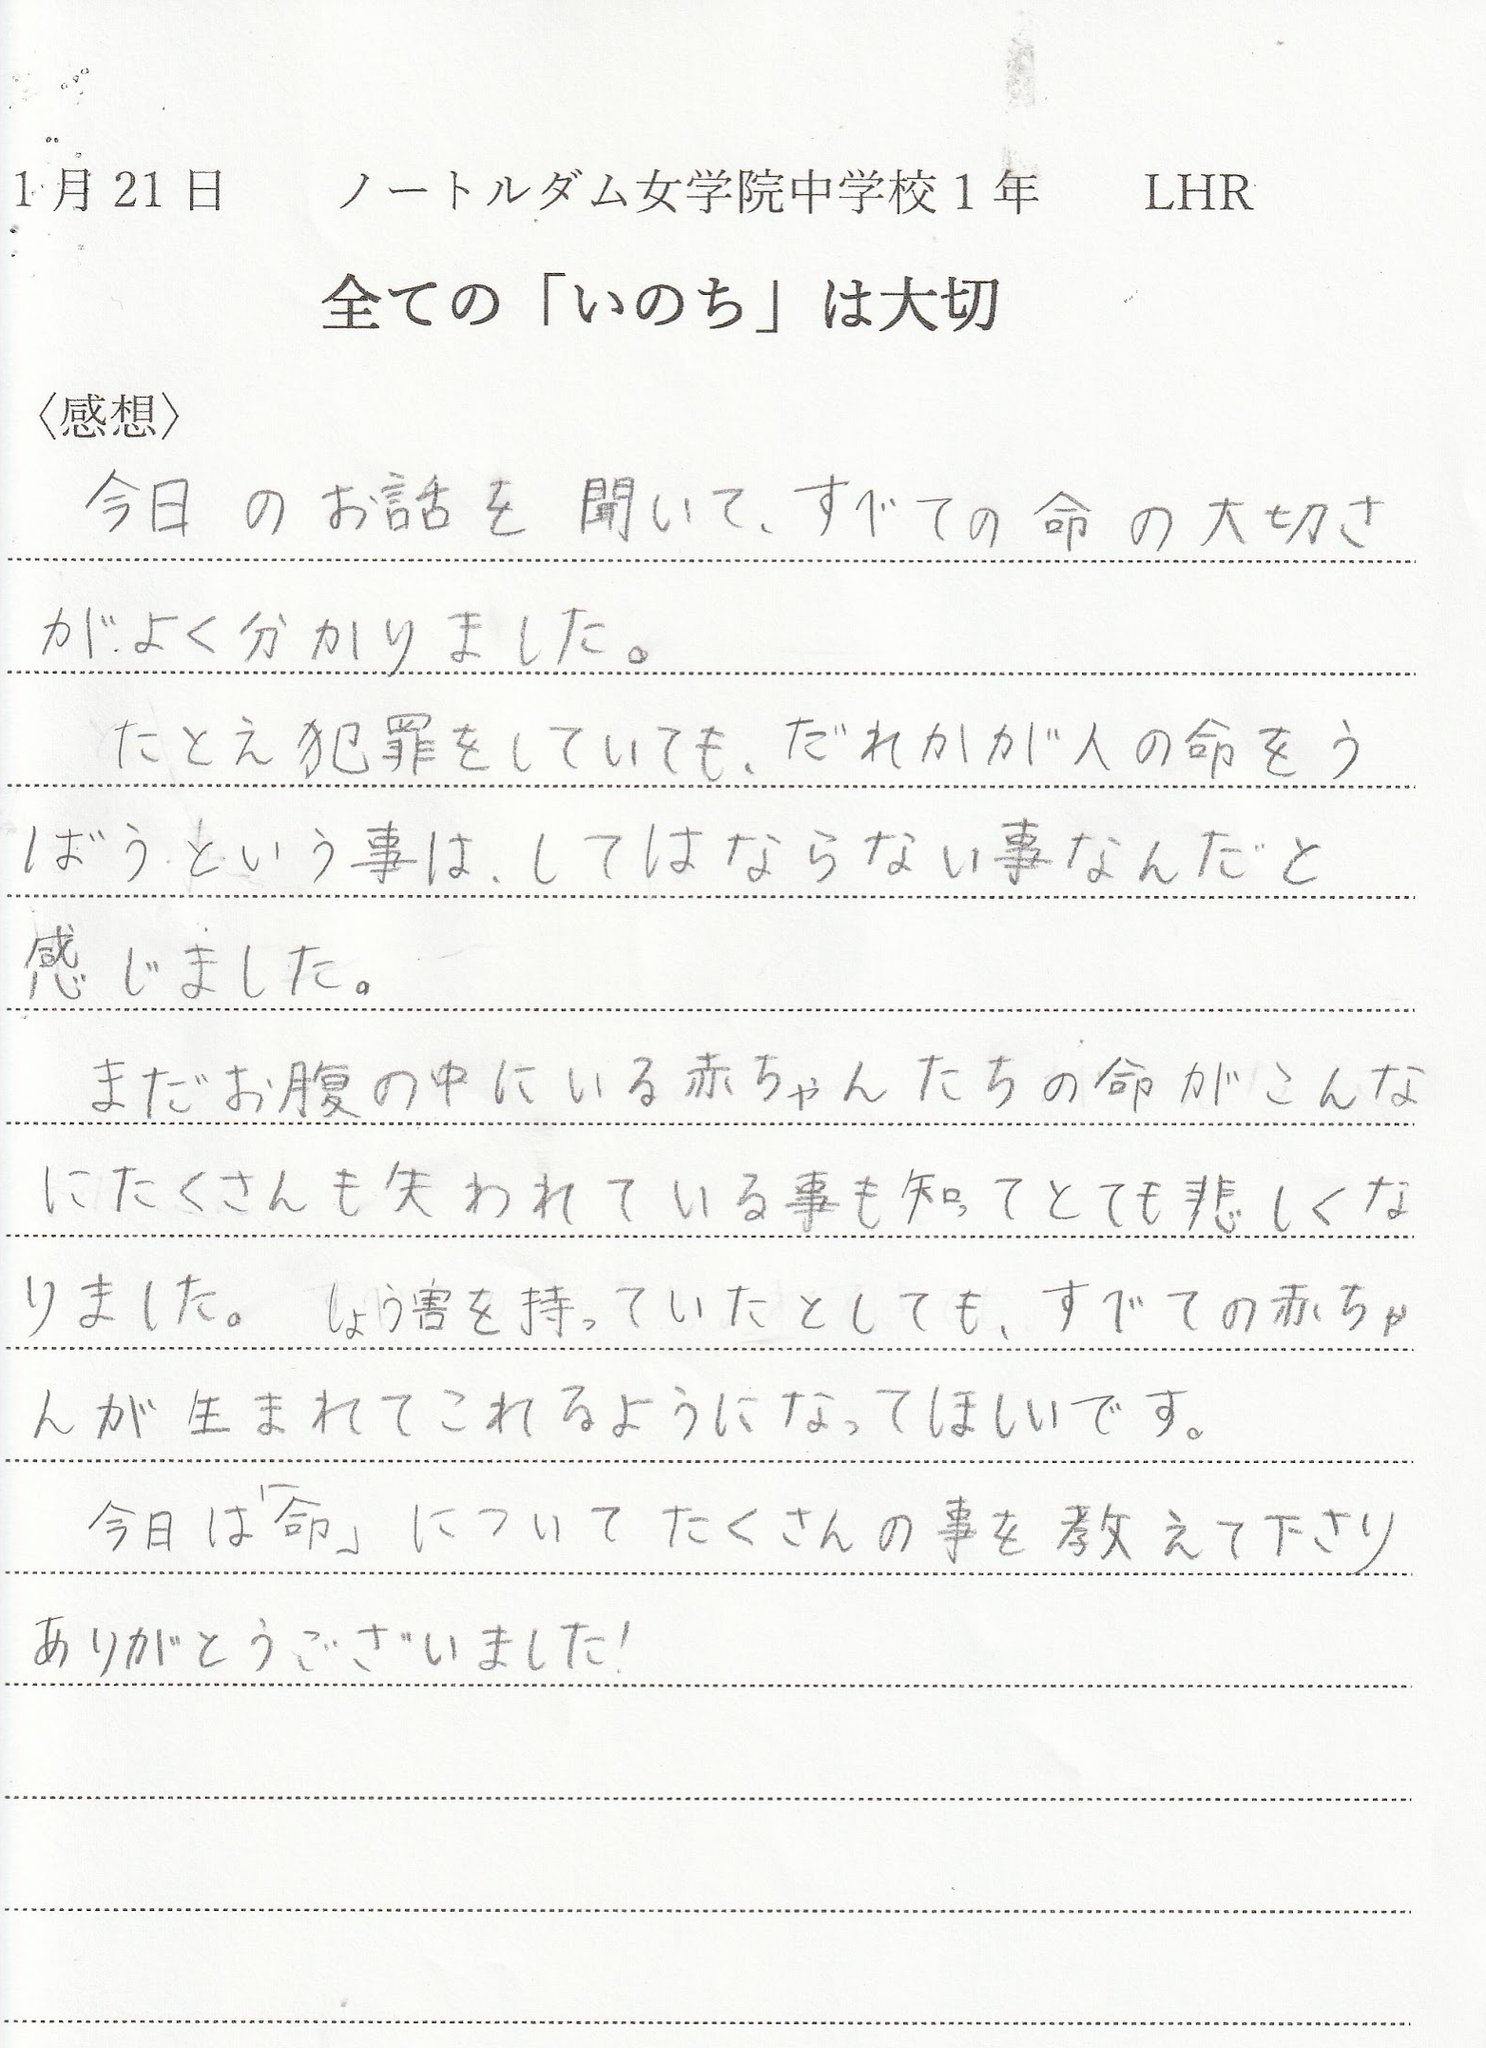 1月21日　ノートルダム女学院中学校1年　LHR
全ての「いのち」は大切
〈感想〉
今日のお話を聞いて、すべての命の大切さ
がよく分かりました。
たとえ犯罪をしていても、だれかが人の命をう
ばうという事は、してはならない事なんだと
感じました。
まだお腹の中にいる赤ちゃんたちの命がこんな
にたくさんも失われている事も知ってとても悲しくな
りました。しょう害を持っていたとしても、すべての赤ちゃ
んが生まれてこれるようになってほしいです。
今日は「命」についてたくさんの事を教えて下さり
ありがとうございました!